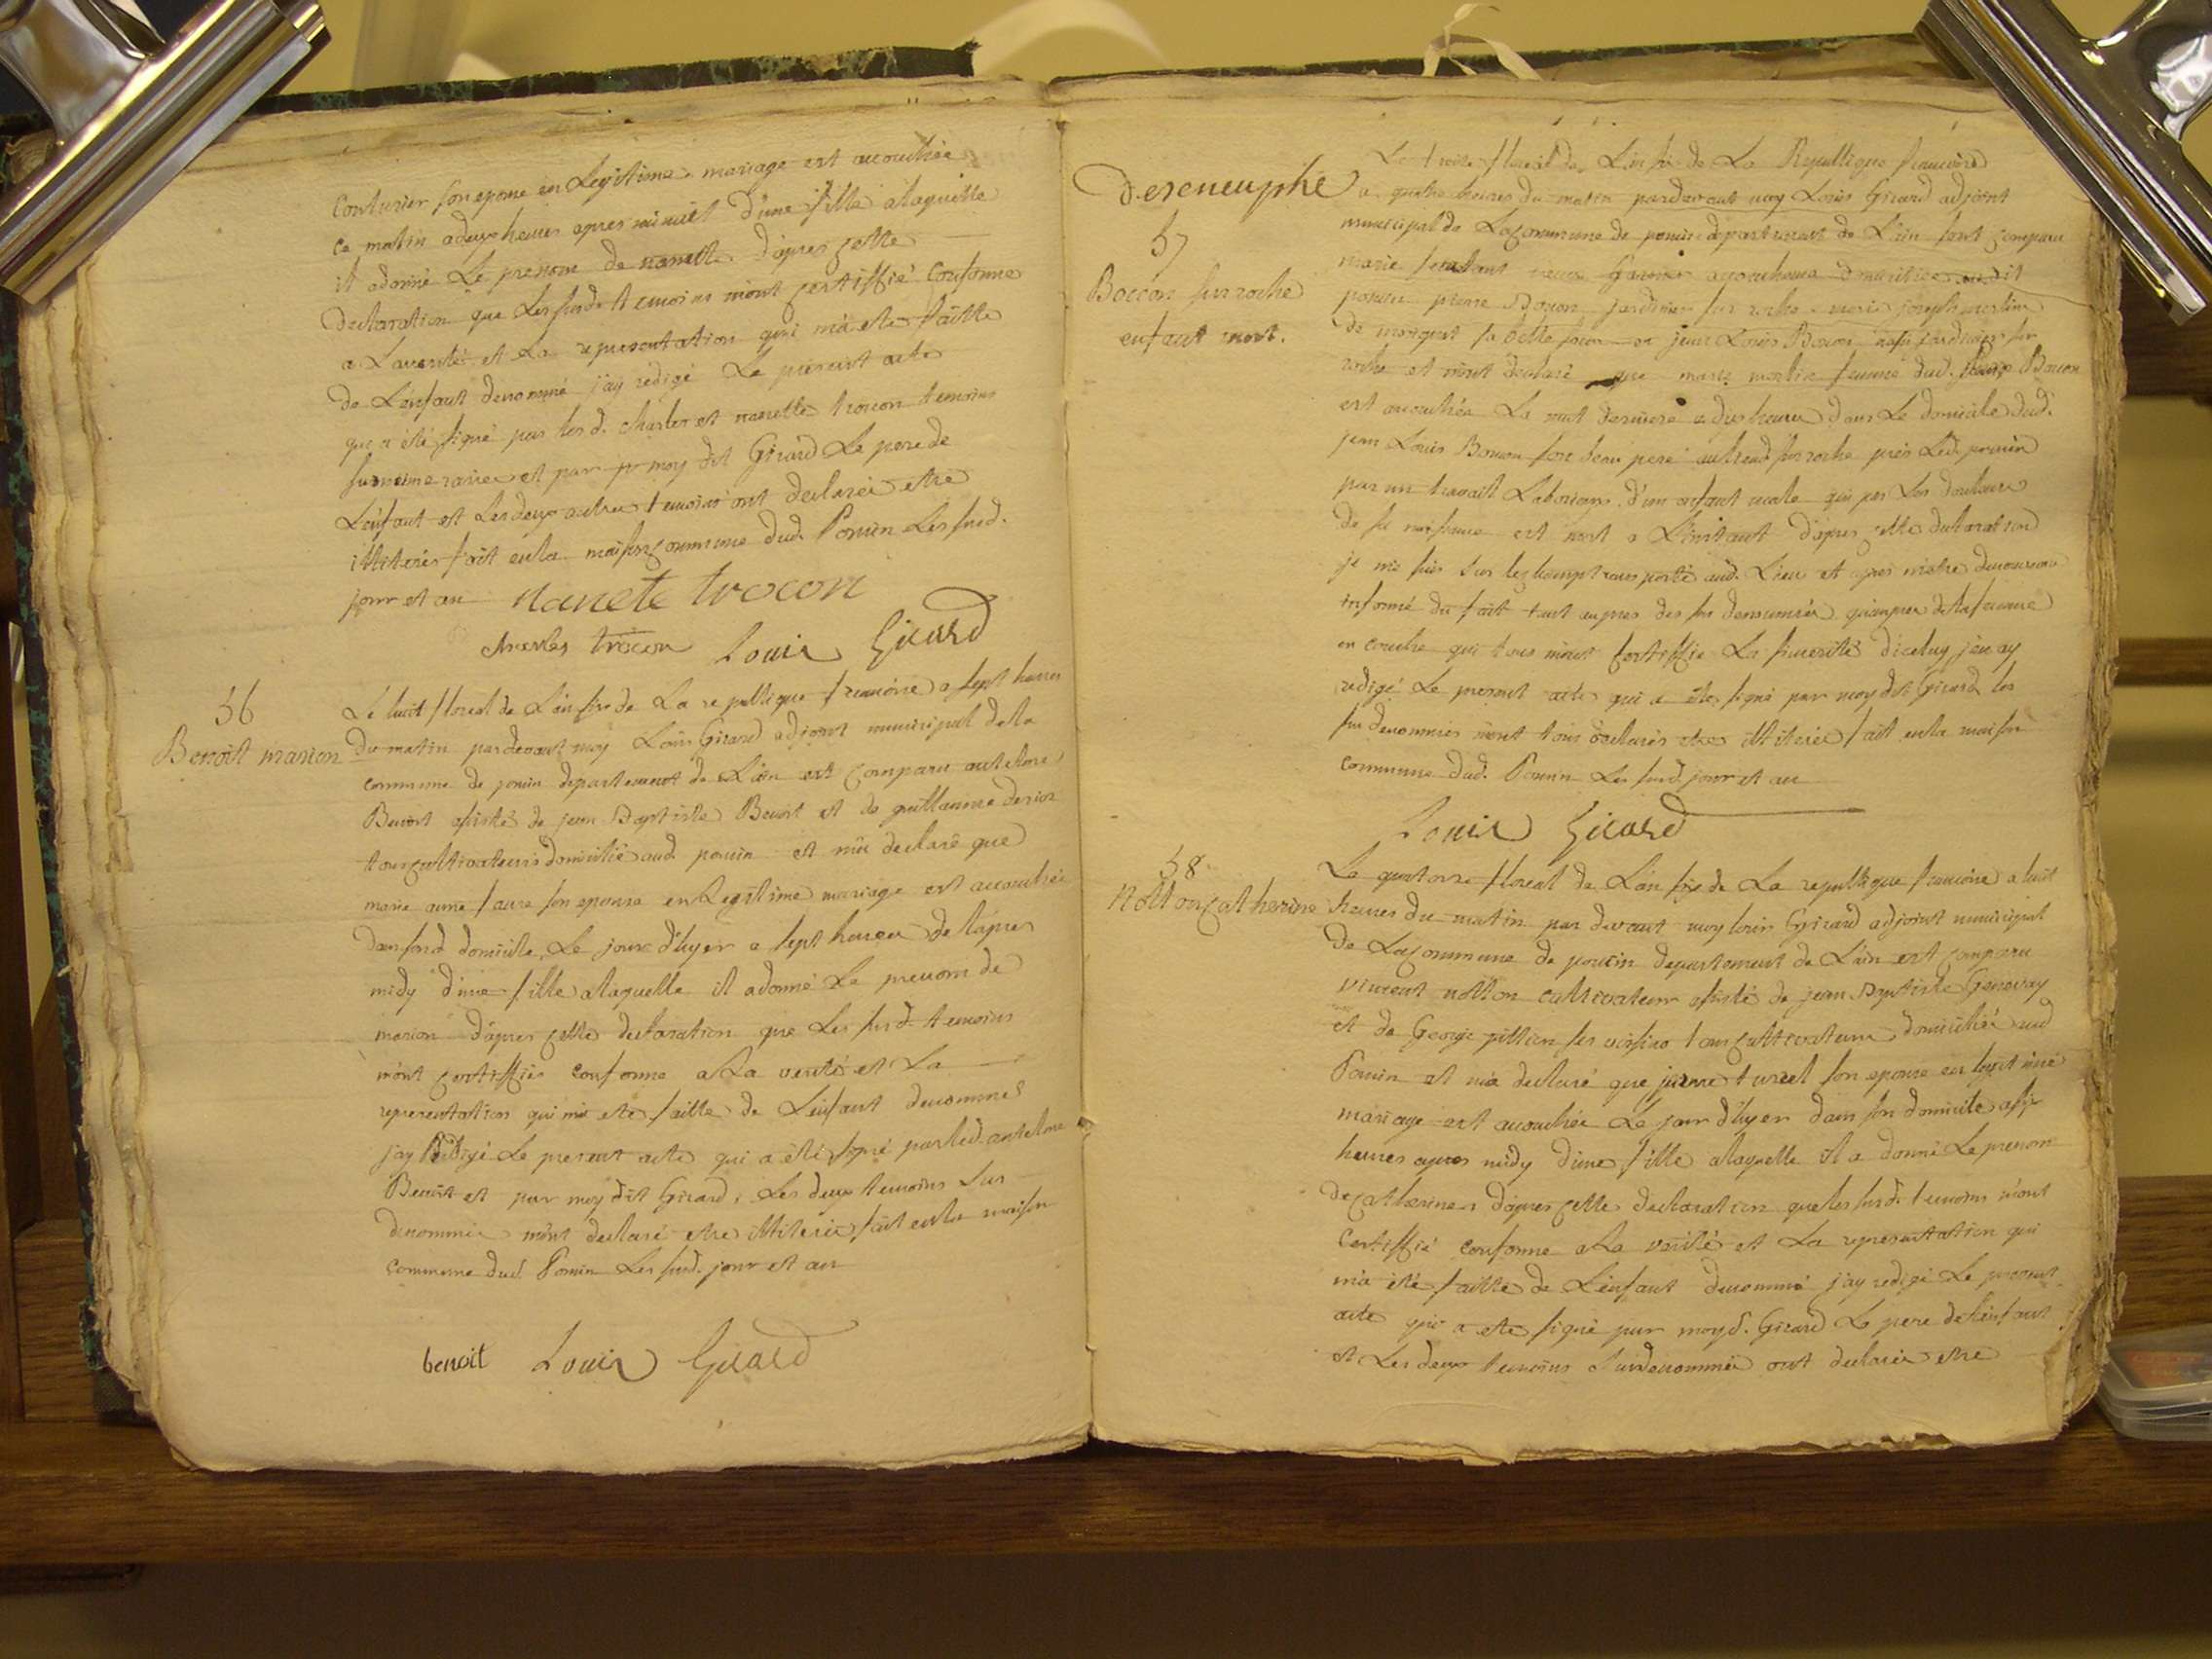 Couturier son epouse en Legitime mariage est accouchée
ce matin a deux heures apres minuit d'une fille a laquelle
il a donné Le prenom de nanette d'apres cette
declaration que Les susd. temoins m'ont certiffié conforme
a La verité et La representation qui m'a eté faitte
de L'enfant denommé j'ay redigé Le present acte
qui a été signé par les d. charles et nanette trocon temoins
et par moy dit Girard Le pere de
L'enfant et Les deux autres temoins ont declarés etre
illiterés fait en la maison commune dud. Poncin Les susd.
jour et an nanete trocon
charles trocon Louis Girard
56
Benoit marion
Le huit floreal de L'an six de La republique francoise a sept heures
du matin pardevant moy Louis Girard adjoint municipal de la
commune de poncin departement de L'ain est comparu antelme
Benoit assisté de jean Baptiste Benoit et de guillaume
tous cultivateurs domicilié aud. poncin et m'a declaré que
marie anne faure son epouse en Legitime mariage est accouchée
dans sond domicile Le jour d'hyer a sept heures de l'apres
midy d'une fille a laquelle il a donné Le prenom de
marion d'apres cette declaration que Les susd. temoins
m'ont certiffiés conforme a La verité et La
representation qui m'a eté faitte de L'enfant denommé
j'ay redigé Le present acte qui a été signé par led. antelme
Benoit et par moy dit Girard, Les deux temoins sus
denommés m'ont declaré etre illiterés fait en la maison
commune dud. Poncin Les susd. jour et an
benoit Louis Girard
57
Boccon sur roche
enfant mort.
Le treize floreal de L'an six de La Republique francoise
a quatre heures du matin pardevant moy Louis Girard adjoint
municipal de La commune de poncin departement de L'ain sont comparu
marie accoucheuse domiciliée audit
poncin pierre Bocon jardinier sur roche marie joseph merlin
de sa belle soeur et jean Louis Bocon aussi jardinier sur
roche et m'ont declaré que marie merlin femme dud. Bocon
est accouchée La nuit derniere a dix heures dans Le domicile dud.
jean Louis Bocon son beau pere au lieud sur roche près Led. poncin
par un travail Laborieux d'un enfant male qui par Les douleurs
de sa naissance est mort a L'instant d'apres cette declaration
je me suis sur le champ transporté aud. Lieu et apres m'etre de nouveau
informé du fait tant aupres des sus denommés qu'aupres de la femme
en couche qui tous m'ont certiffié La sincerité d'icelluy j'en ay
redigé Le present acte qui a eté signé par moy dit Girard les
sus denommés m'ont tous declarés etre illiterés fait en la maison
commune dud. Poncin Les susd. jour et an
Louis Girard
58
Notton catherine
Le quatorze floreal de L'an six de La republique francoise a huit
heures du matin par devant moy louis Girard adjoint municipal
de La commune de poncin departement de L'ain est comparu
vincent notton cultivateur assisté de jean Baptiste Genevay
et de George pittion ses voisins tous cultivateurs domiciliés aud
Poncin et m'a declaré que jeanne turrel son epouse en legitime
mariage est accouchée Le jour d'hyer dans son domicile a six
heures apres midy d'une fille a laquelle il a donné Le prenom
de catherine d'apres cette declaration que les susd. temoins m'ont
certiffié conforme a La verité et La representation qui
m'a eté faitte de L'enfant denommé j'ay redigé Le present
acte qui a eté signé par moy d. Girard Le pere de L'enfant
et Les deux temoins susdenommés ont declarés etre